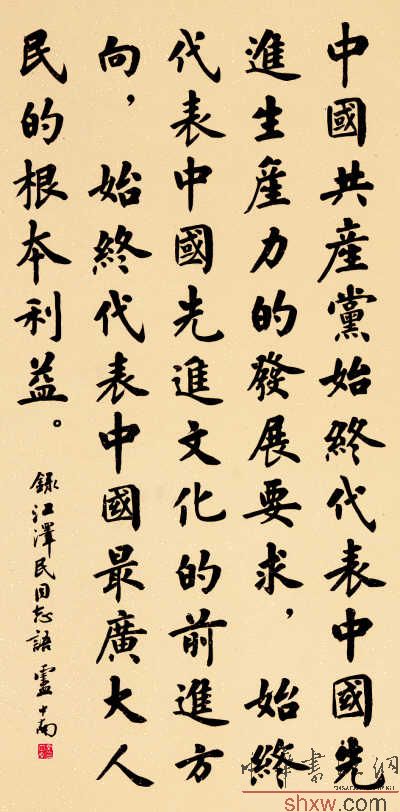 中國共産黨始終代表中國先
進生産力的發展要求，始終
代表中國先進文化的前進方
向，始終代表中國最廣大人
民的根本利益。
錄江澤民同志語 盧中南
shxw.com